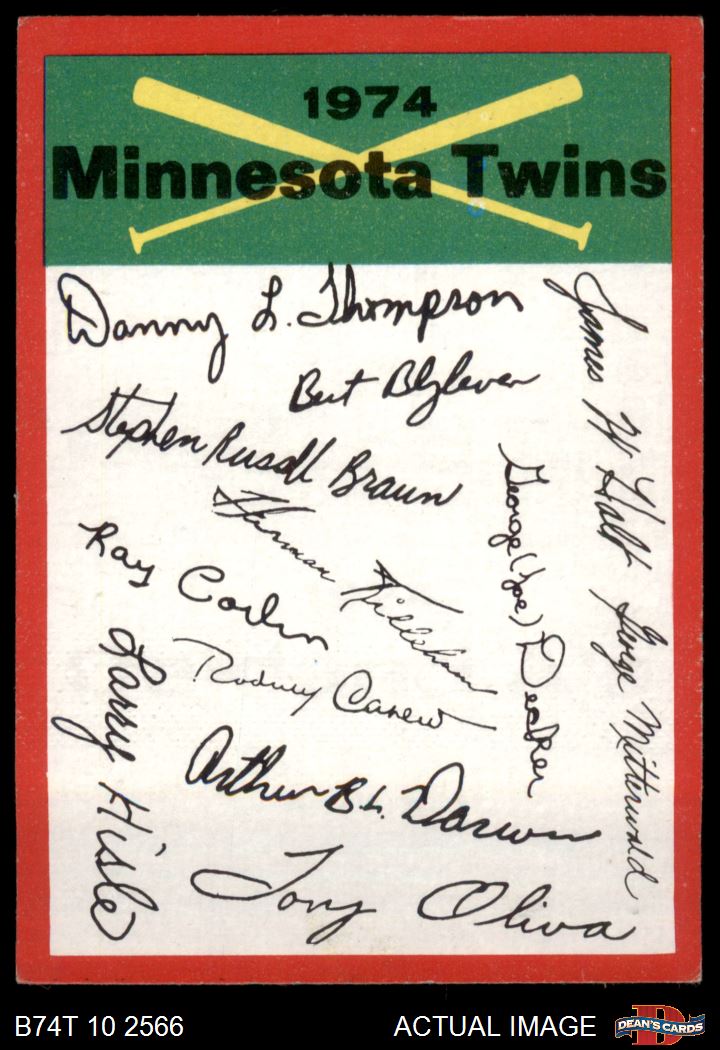 1974
Minnesota Twins
Danny L. Thompson
Bert Blyleven
Stephen Russell Braun
Harman Killebrew
Ray Corbin
Rodney Carew
Larry Hisle
Arthur B L. Darwin
Tony Oliva
George (Joe) Decker
James W Holt
George Mitterwald
B74T 10 2566
ACTUAL IMAGE
D
DEAN'S CARDS